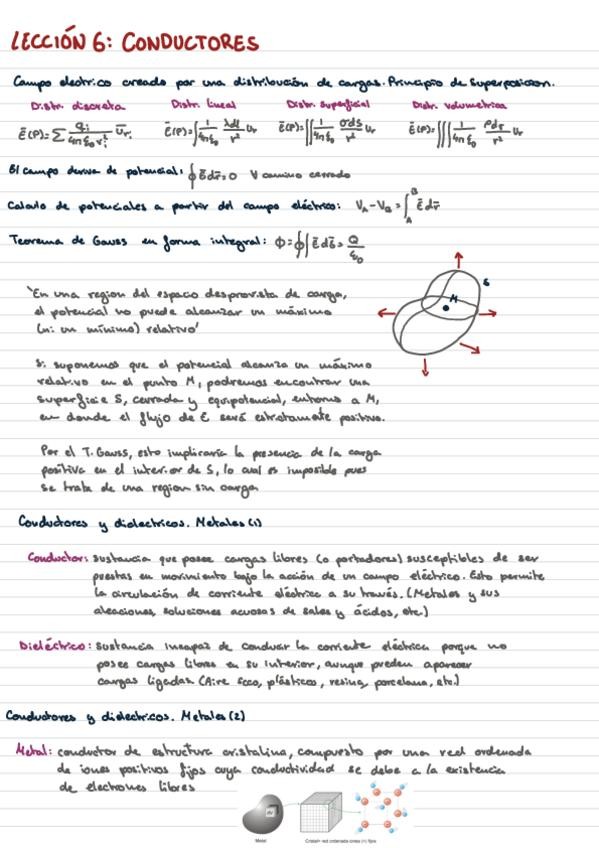 LECCIÓN 6: CONDUCTORES
Campo electrico creado por una distribución de cargas. Principio de superposicion.
Distr. discreta Distr. lineal Distr. superficial Distr. volumetrica
Ē(P)=∑ qi/(4πε₀ri²) ūri Ē(P)=∫ 1/(4πε₀) λdl/r² ur Ē(P)=∬ 1/(4πε₀) σds/r² ur Ē(P)=∭ 1/(4πε₀) ρdτ/r² ur
El campo deriva de potencial: ∮Ēdr̄=0 ∀ camino cerrado
Calculo de potenciales a partir del campo eléctrico: VA-VB=∫_A^B Ēdr̄
Teorema de Gauss en forma integral: Φ=∯Ēds̄=Q/ε₀
'En una region del espacio desprovista de carga,
el potencial no puede alcanzar un máximo
(ni un mínimo) relativo'
S
M
Si suponemos que el potencial alcanza un máximo
relativo en el punto M, podremos encontrar una
superficie S, cerrada y equipotencial, entorno a M,
en donde el flujo de E será estrictamente positivo.
Por el T. Gauss, esto implicaría la presencia de la carga
positiva en el interior de S, lo cual es imposible pues
se trata de una region sin carga
Conductores y dielectricos. Metales (1)
Conductor: sustancia que posee cargas libres (o portadores) susceptibles de ser
puestas en movimiento bajo la acción de un campo eléctrico. Esto permite
la circulación de corriente eléctrica a su través. (Metales y sus
aleaciones, soluciones acuosas de sales y ácidos, etc.)
Dieléctrico: sustancia incapaz de conducir la corriente eléctrica porque no
posee cargas libres en su interior, aunque pueden aparecer
cargas ligadas (Aire seco, plásticos, resina, porcelana, etc.)
Conductores y dielectricos. Metales (2)
Metal: conductor de estructura cristalina, compuesto por una red ordenada
de iones positivos fijos cuya conductividad se debe a la existencia
de electrones libres
dV
Metal Cristal= red ordenada iones (+) fijos